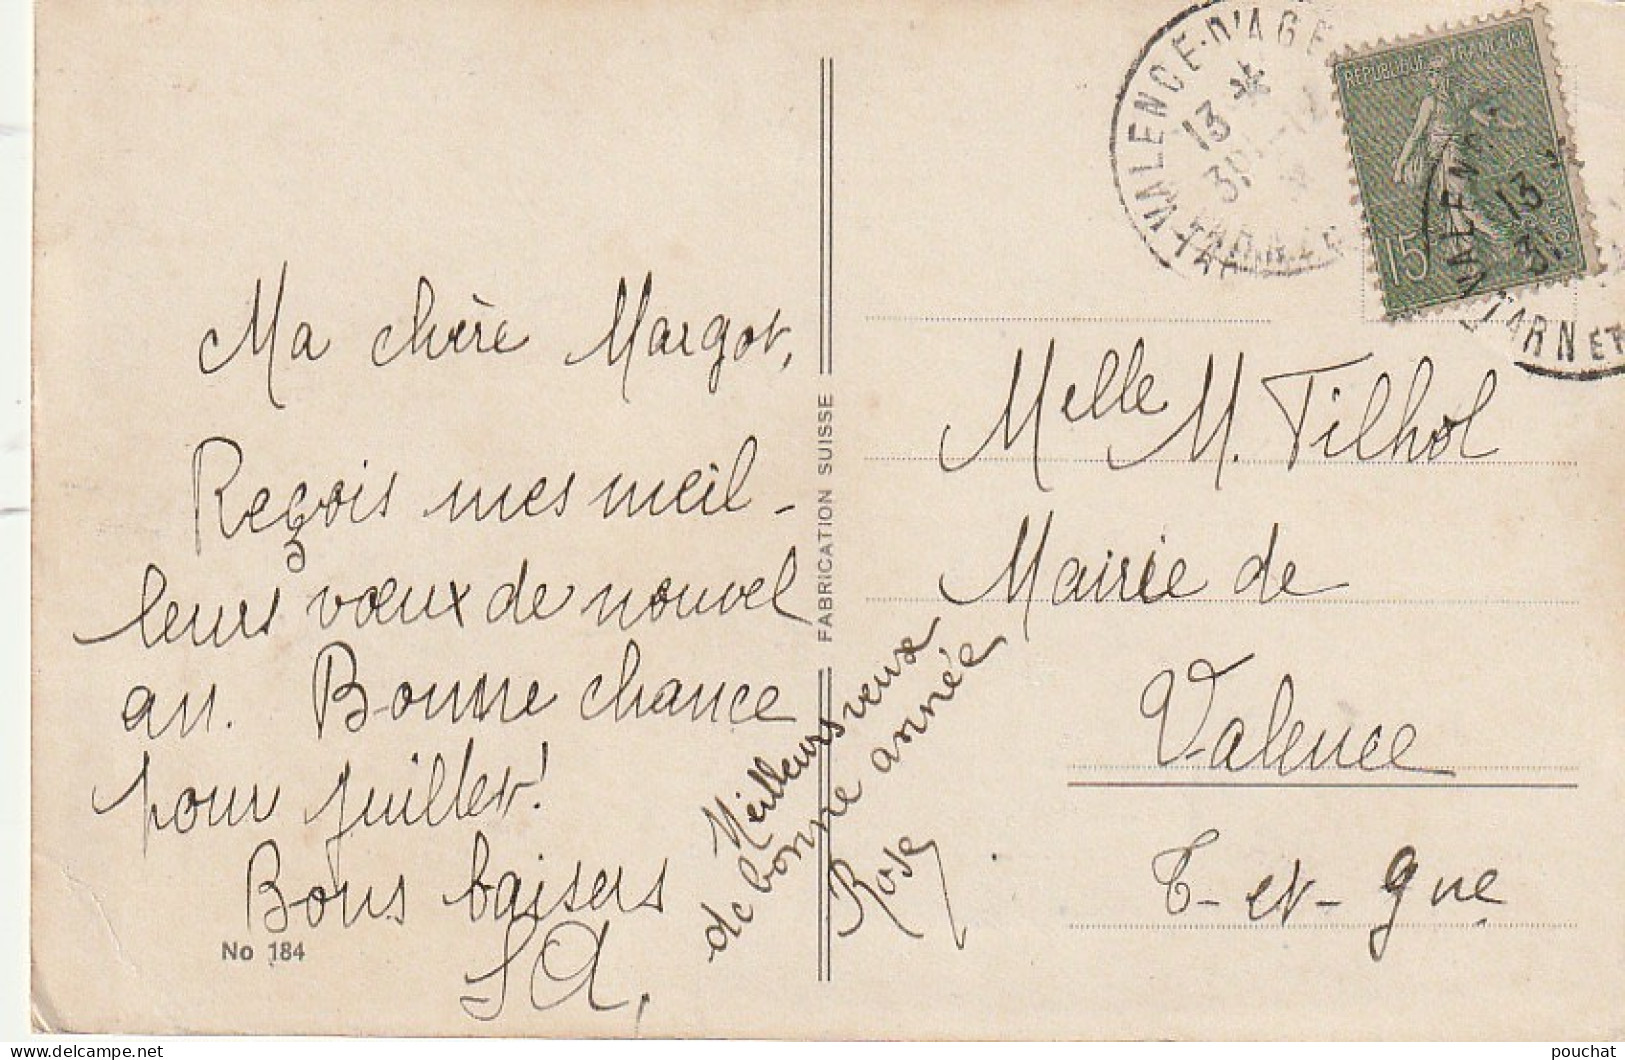 Ma chère Margot,
Reçois mes meil-
leurs vœux de nouvel
an. Bonne chance
pour juillet!
Bons baisers
SA.
No 184
Meilleurs veux
de bonne année
Rose
FABRICATION SUISSE
VALENCE-D'AGEN
13
31-12
RÉPUBLIQUE FRANÇAISE
15
VALENCE
13
31
TARN ET
Melle M. Tilhol
Mairie de
Valence
T-et-Gne
pouchat